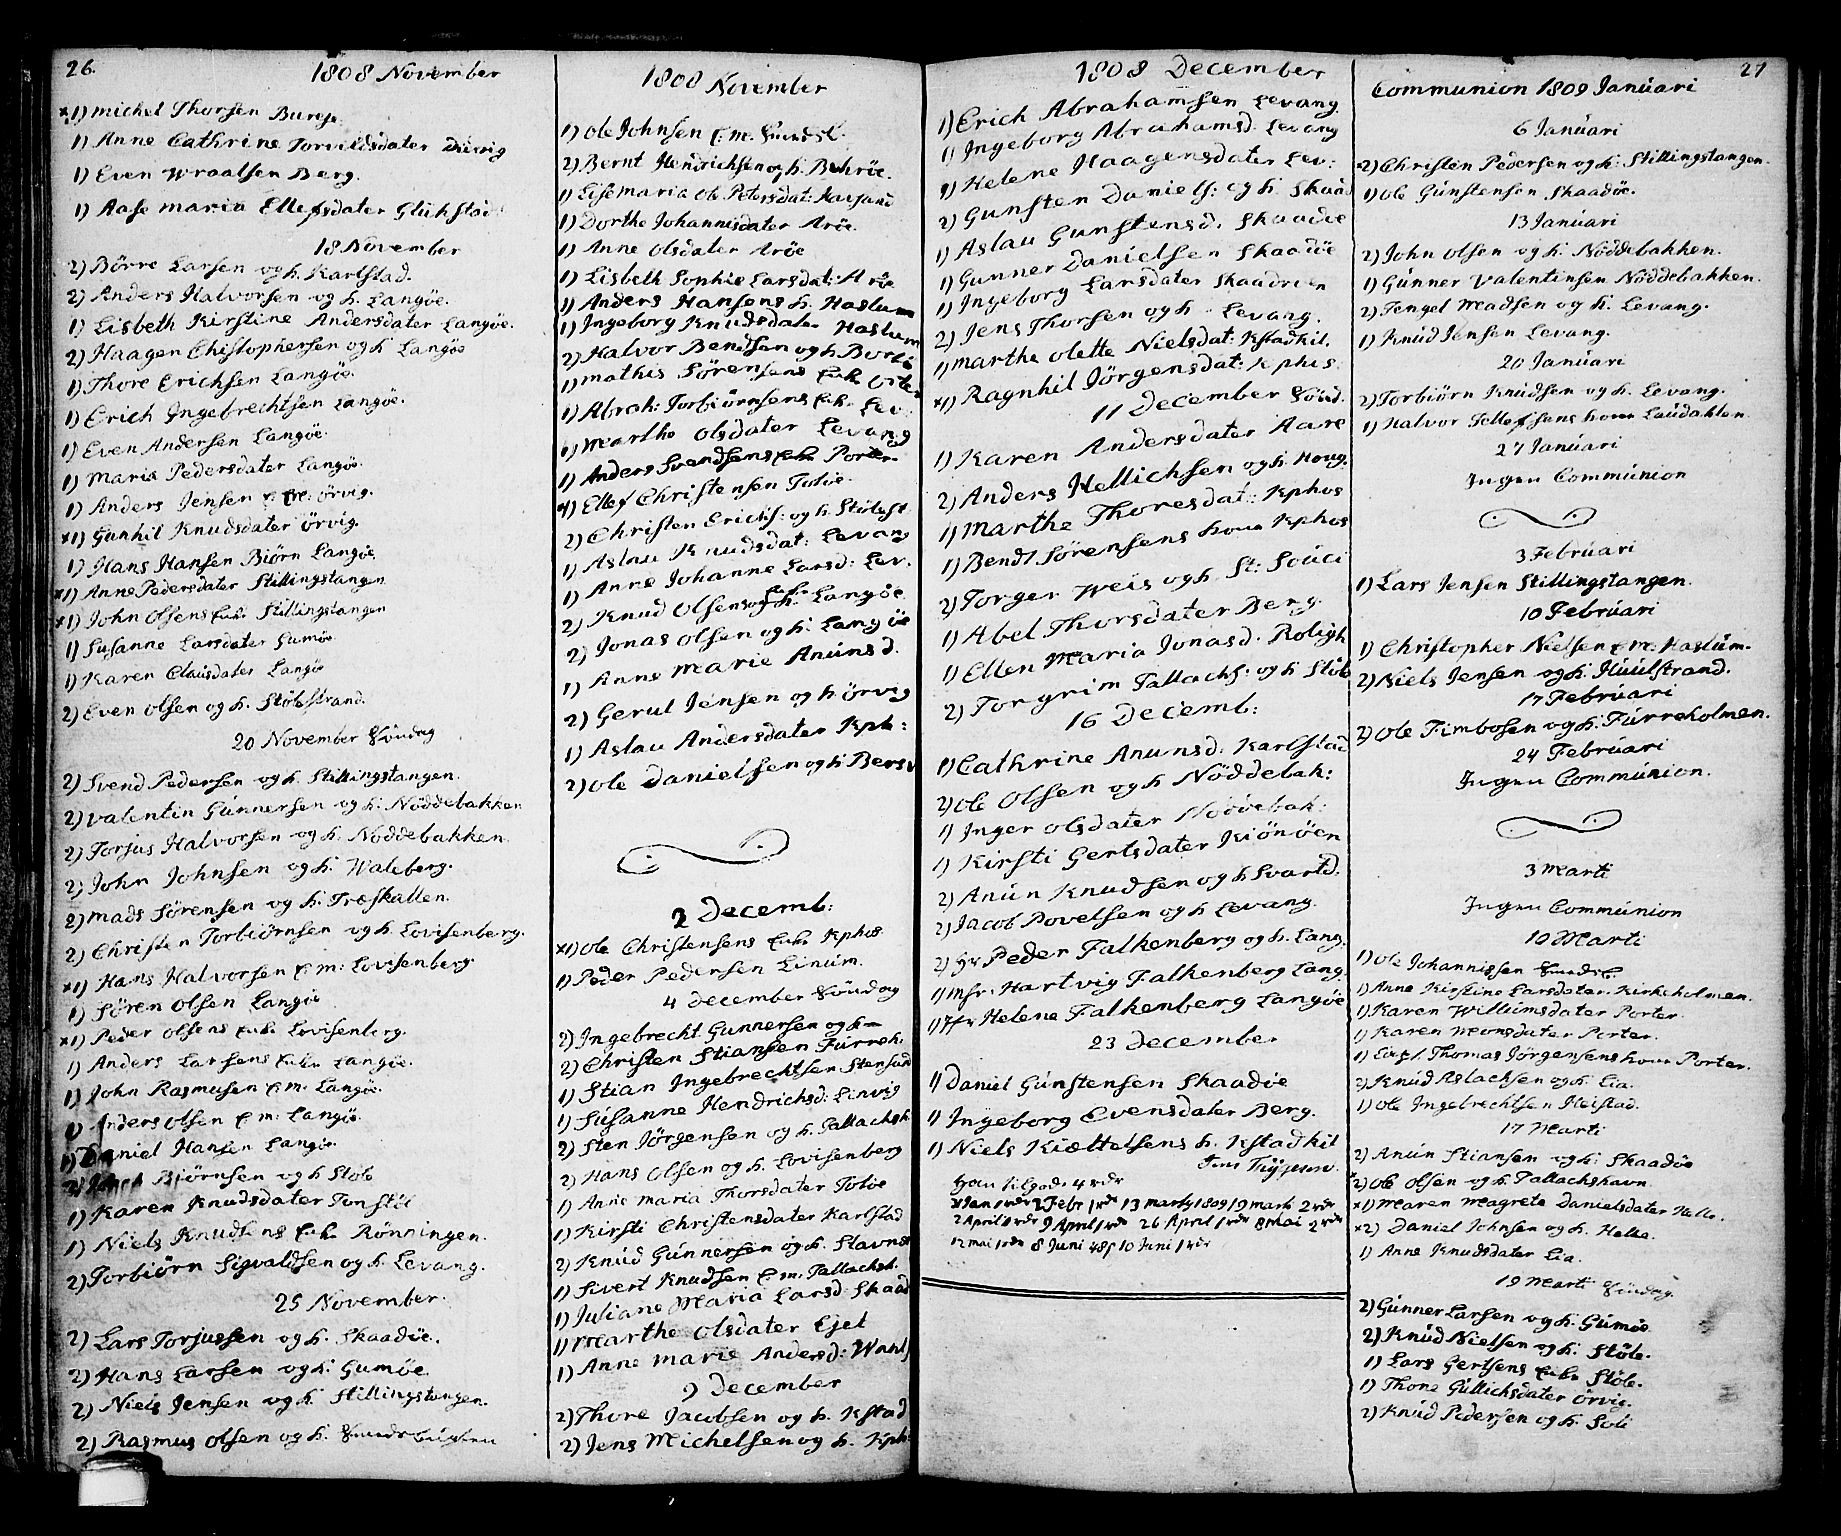 26.
1808 November
×1) Michel Thorsen Burøe
1) Anne Cathrine Torvildsdater
1) Even Wraalsen Berg.
1) Aase Maria Ellefsdater Glükstad
18 November
2) Börre Larsen og h. Karlstad.
2) Anders Halvorsen og h. Langöe.
1) Lisbeth Kirstine Andersdater Langöe.
2) Haagen Christophersen og h Langöe
1) Thore Erichsen Langöe.
1) Erich Ingebrechtsen Langöe.
1) Even Andersen Langöe
1) Maria Pedersdater Langöe
1) Anders Jensen E.m. örvig.
×1) Gunhil Knudsdater örvig.
1) Hans Hansen Biørn Langöe
×1) Anne Pedersdater Stillingstangen
×1) John Olsens Enke Stillingstangen
1) Susanne Larsdater Gumöe
1) Karen Clausdater Langöe
2) Even Olsen og h. Stölestrand.
20 November Söndag
2) Svend Pedersen og h. Stillingstangen.
2) Valentin Gúnnersen og h: Nöddebakken
2) Torjus Halvorsen og h. Nöddebakken.
2) John Johnsen og h. Waleberg.
2) Mads Sörensen og h. Træskatten.
2) Christen Torbiörnsen og h. Lovisenberg.
×1) Hans Halvorsen E.m: Lovisenberg.
1) Sören Olsen Langöe
×1) Peder Olsens Enke Lovisenberg.
1) Anders Larsens Enke Langöe.
1) John Rasmusen E.m. Langöe.
1) Anders Olsen E m: Langöe.
1) Daniel Hansen Langöe.
2) Biörnsen og h Stöle
1) Karen Knudsdater Tonstöl
1) Niels Knudsens Enke Rönningen.
2) Torbiörn Sigvaldsen og h. Levang.
25 November.
2) Lars Torjussen og h. Skaadöe.
2) Hans Larsen og h. Gumöe
2) Niels Jensen og h. Stillingstangen.
2) Rasmus Olsen og h.
1808 November
1) Ole Johnsen E.m.
2) Bernt Hendrichsen og h. Buhröe.
1) Elsemaria Ole Petersdat:
1) Dorthe Johannisdater Aröe.
1) Anne Olsdater Aröe
1) Lisbeth Sophie Larsdat: Aröe
1) Anders Hansens h. Haslum
1) Ingeborg Knudsdater Haslum
2) Halvor Bendsen og h
1) Mathis Sörensens Enke
1) Abrah: Torbiörnsens Enk. Lev.
1) Marthe Olsdater Levang
1) Anders Svendsens Enke Porter
×1) Ellef Christensen Toböe.
2) Christen Erichs: og h. Stölest
1) Aslau Knudsdat: Levang
1) Anne Johanne Larsd: Lev.
2) Knud Olsens og h. Langöe
2) Jonas Olsen og h. Langöe
1) Anne Marie Anunsd.
2) Gerul Jensen og h. örvig
1) Aslau Andersdater Kph:
2) Ole Danielsen og h
2 Decemb:
×1) Ole Christensens Enke Kphos
1) Peder Pedersen Linúm.
4 December Söndag
2) Ingebrecht Gunnersen og h
2) Christen Stiansen Furreh.
1) Stian Ingebrechtsen Stensund
1) Susanne Hendrichsd: Linvig
2) Sten Jörgensen og h. Tallachsh
2) Hans Olsen og h. Lovisenberg
1) Anne Maria Thorsdater Toböe
1) Kirsti Christensdater Karlstad
2) Knúd Gúnnersen og h. Stavnes
1) Sivert Knudsen E.m. Tallachsh.
1) Juliane Maria Larsd: Skaad
1) Marthe Olsdater Eiet
1) Anne Marie Andersd:
9 December
2) Thore Jacobsen og h. Kstad
2) Jens Michelsen og h. Kph
1808 December
1) Erich Abrahamsen Levang
1) Ingeborg Abrahamsd. Levang
1) Helene Haagensdater Lev:
2) Gunsten Daniels: og h. Skaad
1) Aslau Gunstensd. Skaadöe
1) Gunner Danielsen Skaadöe
1) Ingeborg Larsdater
2) Jens Thorsen og h. Levang.
1) Marthe Olette Nielsdat: Kstadkil.
×1) Ragnhil Jörgensdat: Kphus.
11 December Sönd.
1) Karen Andersdater Aarö
2) Anders Hellichsen og h. Houg.
1) Marthe Thoresdat: Kphos
1) Bendt Sörensens Kone Kphos
2) Torger Weis og h. St: Souci
1) Abel Thorsdater Berg.
1) Ellen Maria Jonasd. Roligh
2) Torgrim Tallachs: og h. Stöle
16 Decemb:
1) Cathrine Anunsd: Karlstad
2) Ole Olsen og h Nöddebak:
1) Inger Olsdater Nöddebak:
1) Kirsti Gertsdater Kiönöen
2) Anún Knudsen og h Svartd.
2) Jacob Povelsen og h Levang.
2) Hr Peder Falkenberg og h. Lang.
1) Msr. Hartvig Falkenberg Lang.
1) Jfr Helene Falkenberg Langöe
23 December
1) Daniel Gúnstensen Skaadöe
1) Ingeborg Evensdater Berg.
1) Niels Kiættelsens h. Kstadkil

2 April 1 rdr 9 April 1 rdr 26 April 1 rdr 8 Mai 2 rdr
12 Mai 1 rdr 8 Juni 48 s 10 Juni 1 rdr
27
Communion 1809 Januári
6 Januári
×2) Christen Pedersen og h. Stillingstangen.
1) Ole Gúnstensen Skaadöe.
13 Januári
2) John Olsen og h. Nöddebakken.
1) Gúnner Valentinsen Nöddebakken.
2) Tengel Madsen og h. Levang.
1) Knúd Jensen Levang.
20 Januári
2) Torbiörn Knúdsen og h. Levang.
1) Halvor Tellefsens Kone Laúdahlen
27 Januári
Ingen Commúnion
3 Februári
1) Lars Jensen Stillingstangen.
10 Februári
1) Christopher Nielsen E.m. Haslúm.
2) Niels Jensen og h. Húúlstrand.
17 Februári
2) Ole Timbosen og h: Fúrreholmen.
24 Februári
Ingen Commúnion.
3 Marti
Ingen Commúnion
10 Marti
1) Ole Johannissen
1) Anne Kirstine Larsdater. Kirkeholmen.
1) Karen Williumsdater Porter.
1) Karen Monsdater Porter.
1) Capt. Thomas Jörgensens Kone Porter.
2) Knúd Aslachsen og h. Lia.
1) Ole Ingebrechtsen Heistad.
17 Marti
2) Anún Stiansen og h: Skaadöe
2) Ole Olsen og h. Tallachshavn.
×1) Maren Magrete Danielsdater Helle.
×2) Daniel Johnsen og h. Helle.
1) Anne Knudsdater Lia.
19 Marti Söndag.
2) Gúnner Larsen og h. Gúmöe
2) Knúd Nielsen og h. Stöle.
1) Lars Gertsens Enke Stöle.
1) Thone Gúllichsdater örvig.
2) Knúd Pedersen og h.